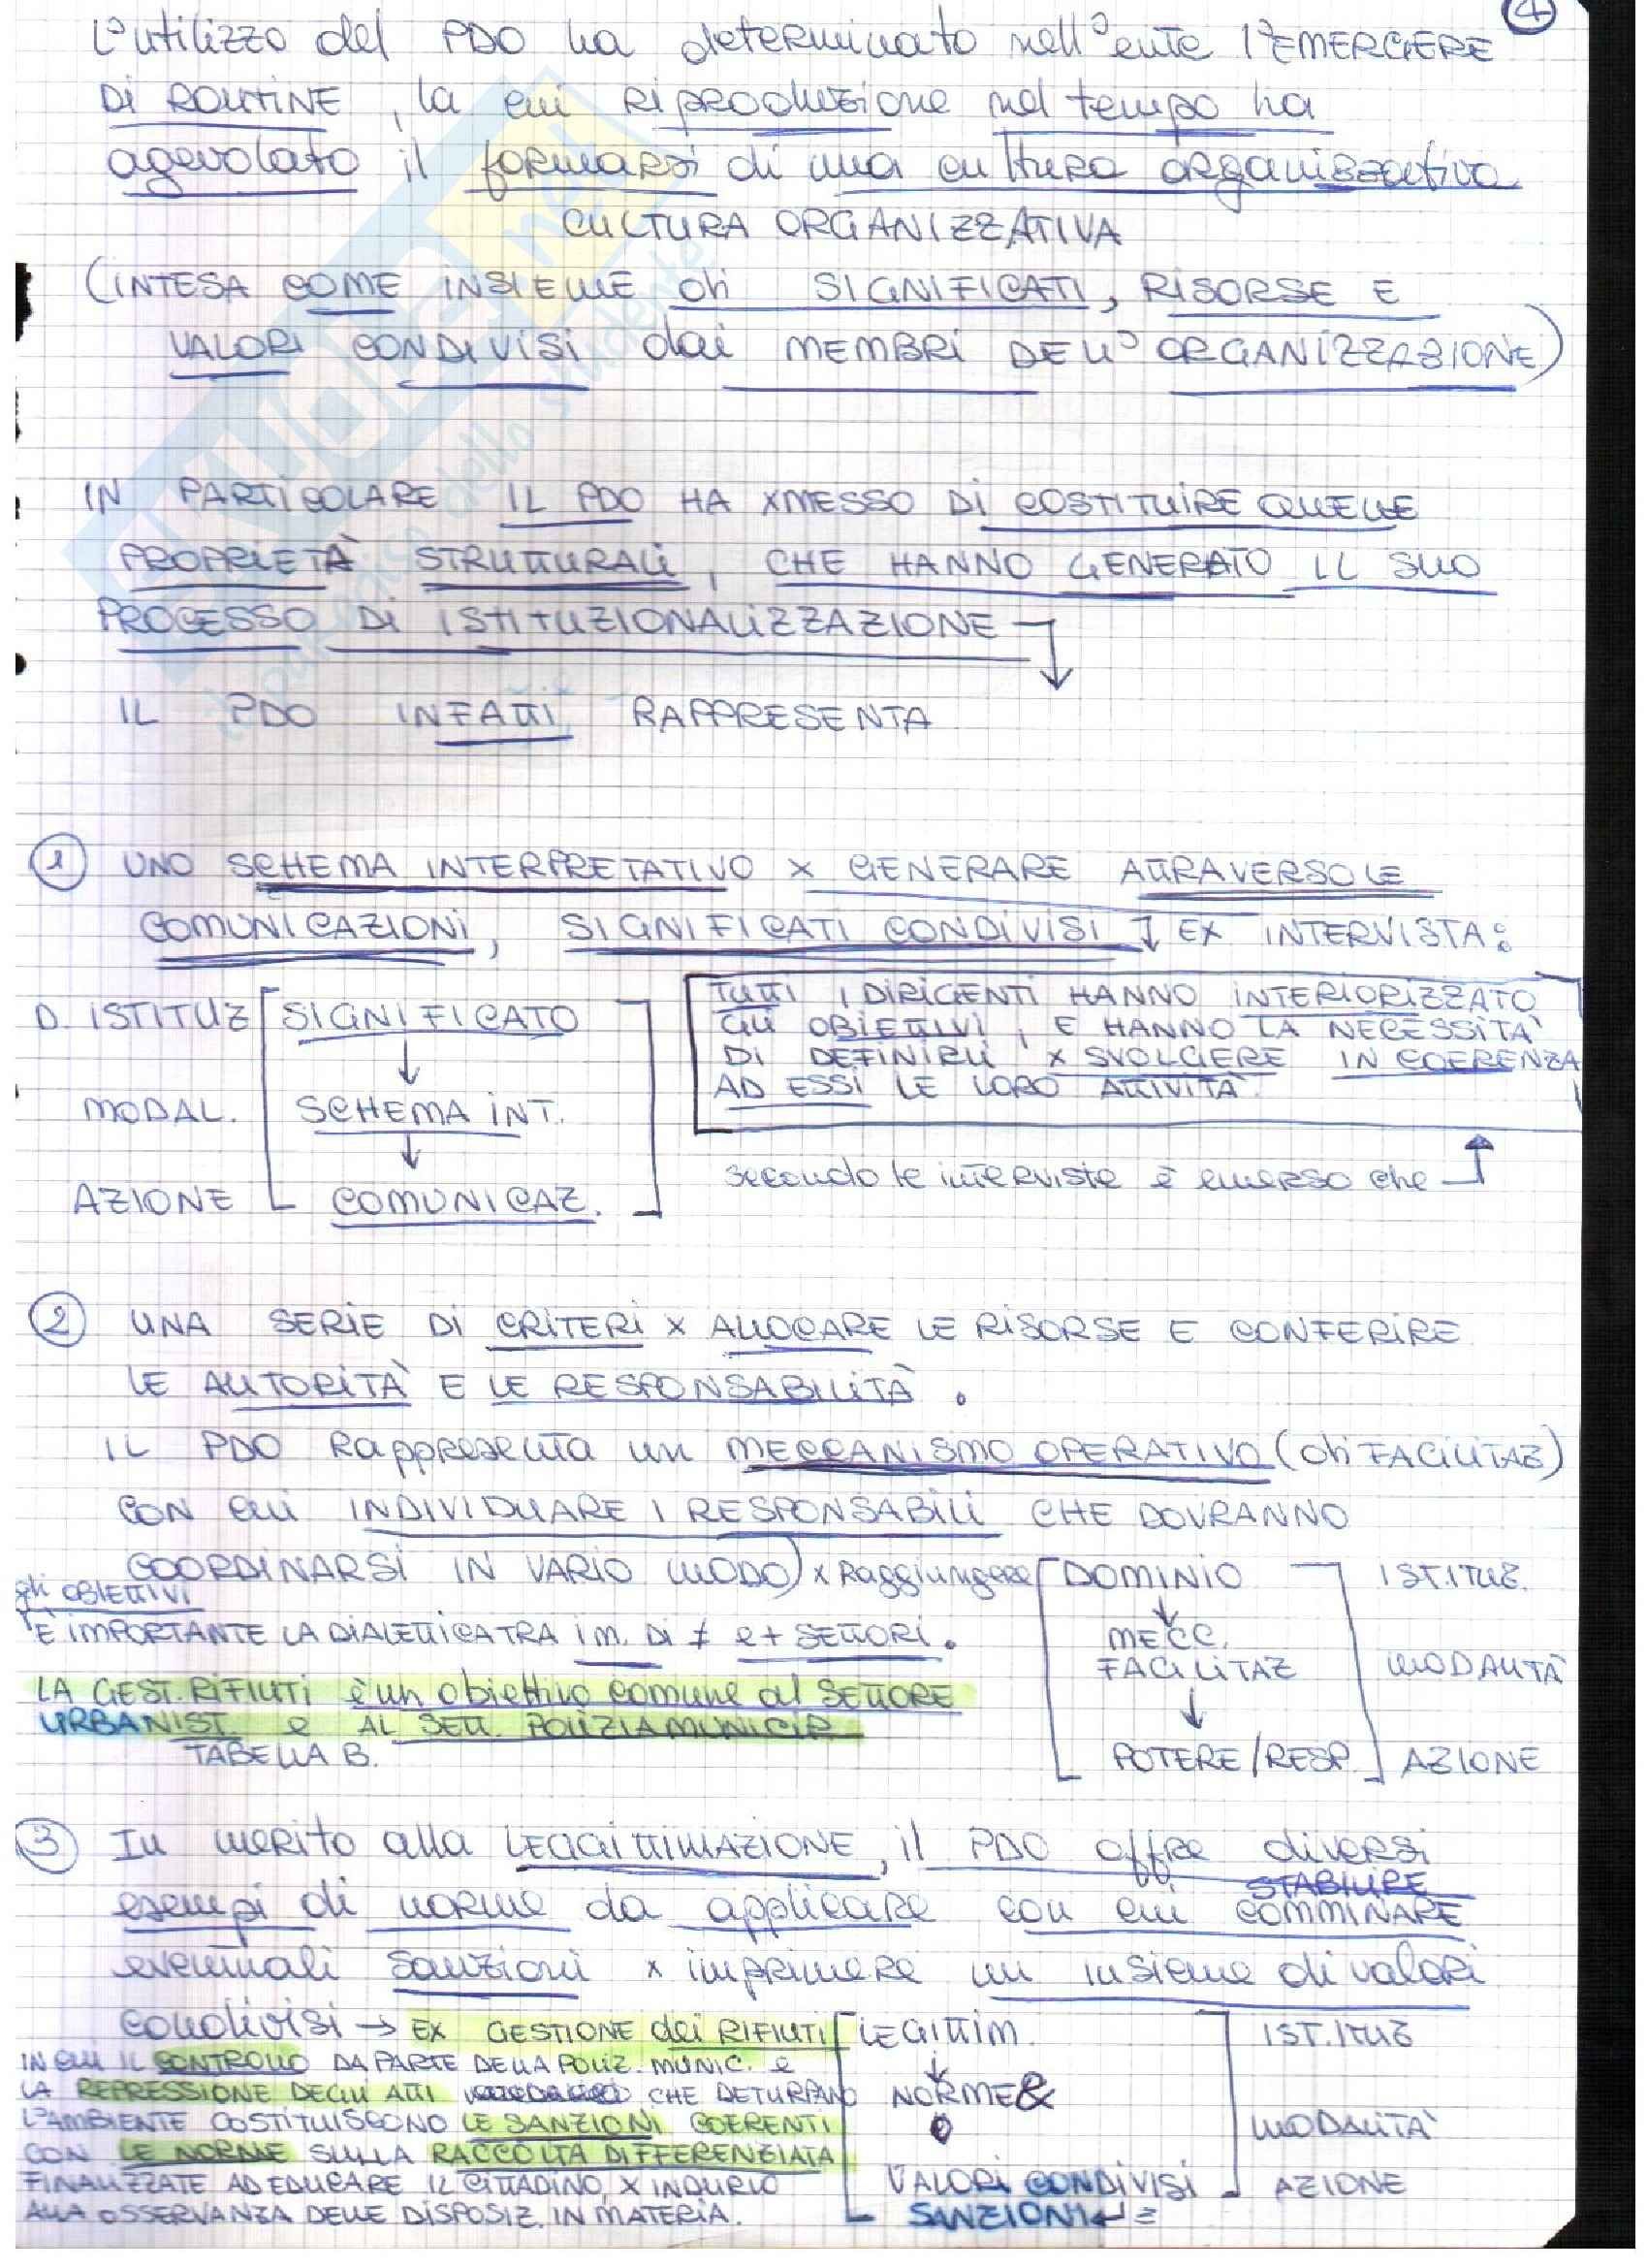 4
L'utilizzo del PDO ha determinato nell'ente l'EMERGERE
DI ROUTINE, la cui RIPRODUZIONE nel tempo ha
agevolato il formarsi di una cultura organizzativa
CULTURA ORGANIZZATIVA
(INTESA COME INSIEME di SIGNIFICATI, RISORSE E
VALORI CONDIVISI dai MEMBRI DELL'ORGANIZZAZIONE)
IN PARTICOLARE IL PDO HA XMESSO DI COSTITUIRE QUELLE
PROPRIETÀ STRUTTURALI, CHE HANNO GENERATO IL SUO
PROCESSO DI ISTITUZIONALIZZAZIONE
IL PDO INFATTI RAPPRESENTA
1 UNO SCHEMA INTERPRETATIVO X GENERARE ATTRAVERSO LE
COMUNICAZIONI, SIGNIFICATI CONDIVISI ↓ EX INTERVISTA:
D. ISTITUZ [SIGNIFICATO
↓
MODAL. SCHEMA INT.
↓
AZIONE COMUNICAZ.
TUTTI I DIRIGENTI HANNO INTERIORIZZATO
GLI OBIETTIVI, E HANNO LA NECESSITÀ
DI DEFINIRLI X SVOLGERE IN COERENZA
AD ESSI LE LORO ATTIVITÀ
secondo le interviste è emerso che
2 UNA SERIE DI CRITERI X ALLOCARE LE RISORSE E CONFERIRE
LE AUTORITÀ E LE RESPONSABILITÀ.
IL PDO Rappresenta un MECCANISMO OPERATIVO (di FACILITAZ)
CON cui INDIVIDUARE I RESPONSABILI CHE DOVRANNO
COORDINARSI IN VARIO MODO) x Raggiungere
gli OBIETTIVI
È IMPORTANTE LA DIALETTICA TRA IM. DI ≠ e + SETTORI.
LA GEST. RIFIUTI è un obiettivo comune al SETTORE
URBANIST. e AL SETT. POLIZIA MUNICIP.
TABELLA B.
[DOMINIO ISTITUZ.
↓
MECC.
FACILITAZ MODALITÀ
↓
POTERE/RESP.] AZIONE
3 In merito alla LEGGITTIMAZIONE, il PDO offre diversi
esempi di norme da applicare con cui STABILIRE COMMINARE
eventuali sanzioni x imprimere un insieme di valori
condivisi → EX GESTIONE dei RIFIUTI
IN cui IL CONTROLLO DA PARTE DELLA POLIZ. MUNIC. e
LA REPRESSIONE DEGLI ATTI CHE DETURPANO
L'AMBIENTE COSTITUISCONO LE SANZIONI COERENTI
CON LE NORME SULLA RACCOLTA DIFFERENZIATA
FINALIZZATE AD EDUCARE IL CITTADINO, X INDURLO
ALLA OSSERVANZA DELLE DISPOSIZ. IN MATERIA.
[LEGITTIM. ISTITUZ
↓
NORME&
MODALITÀ
VALORI CONDIVISI AZIONE
SANZIONI